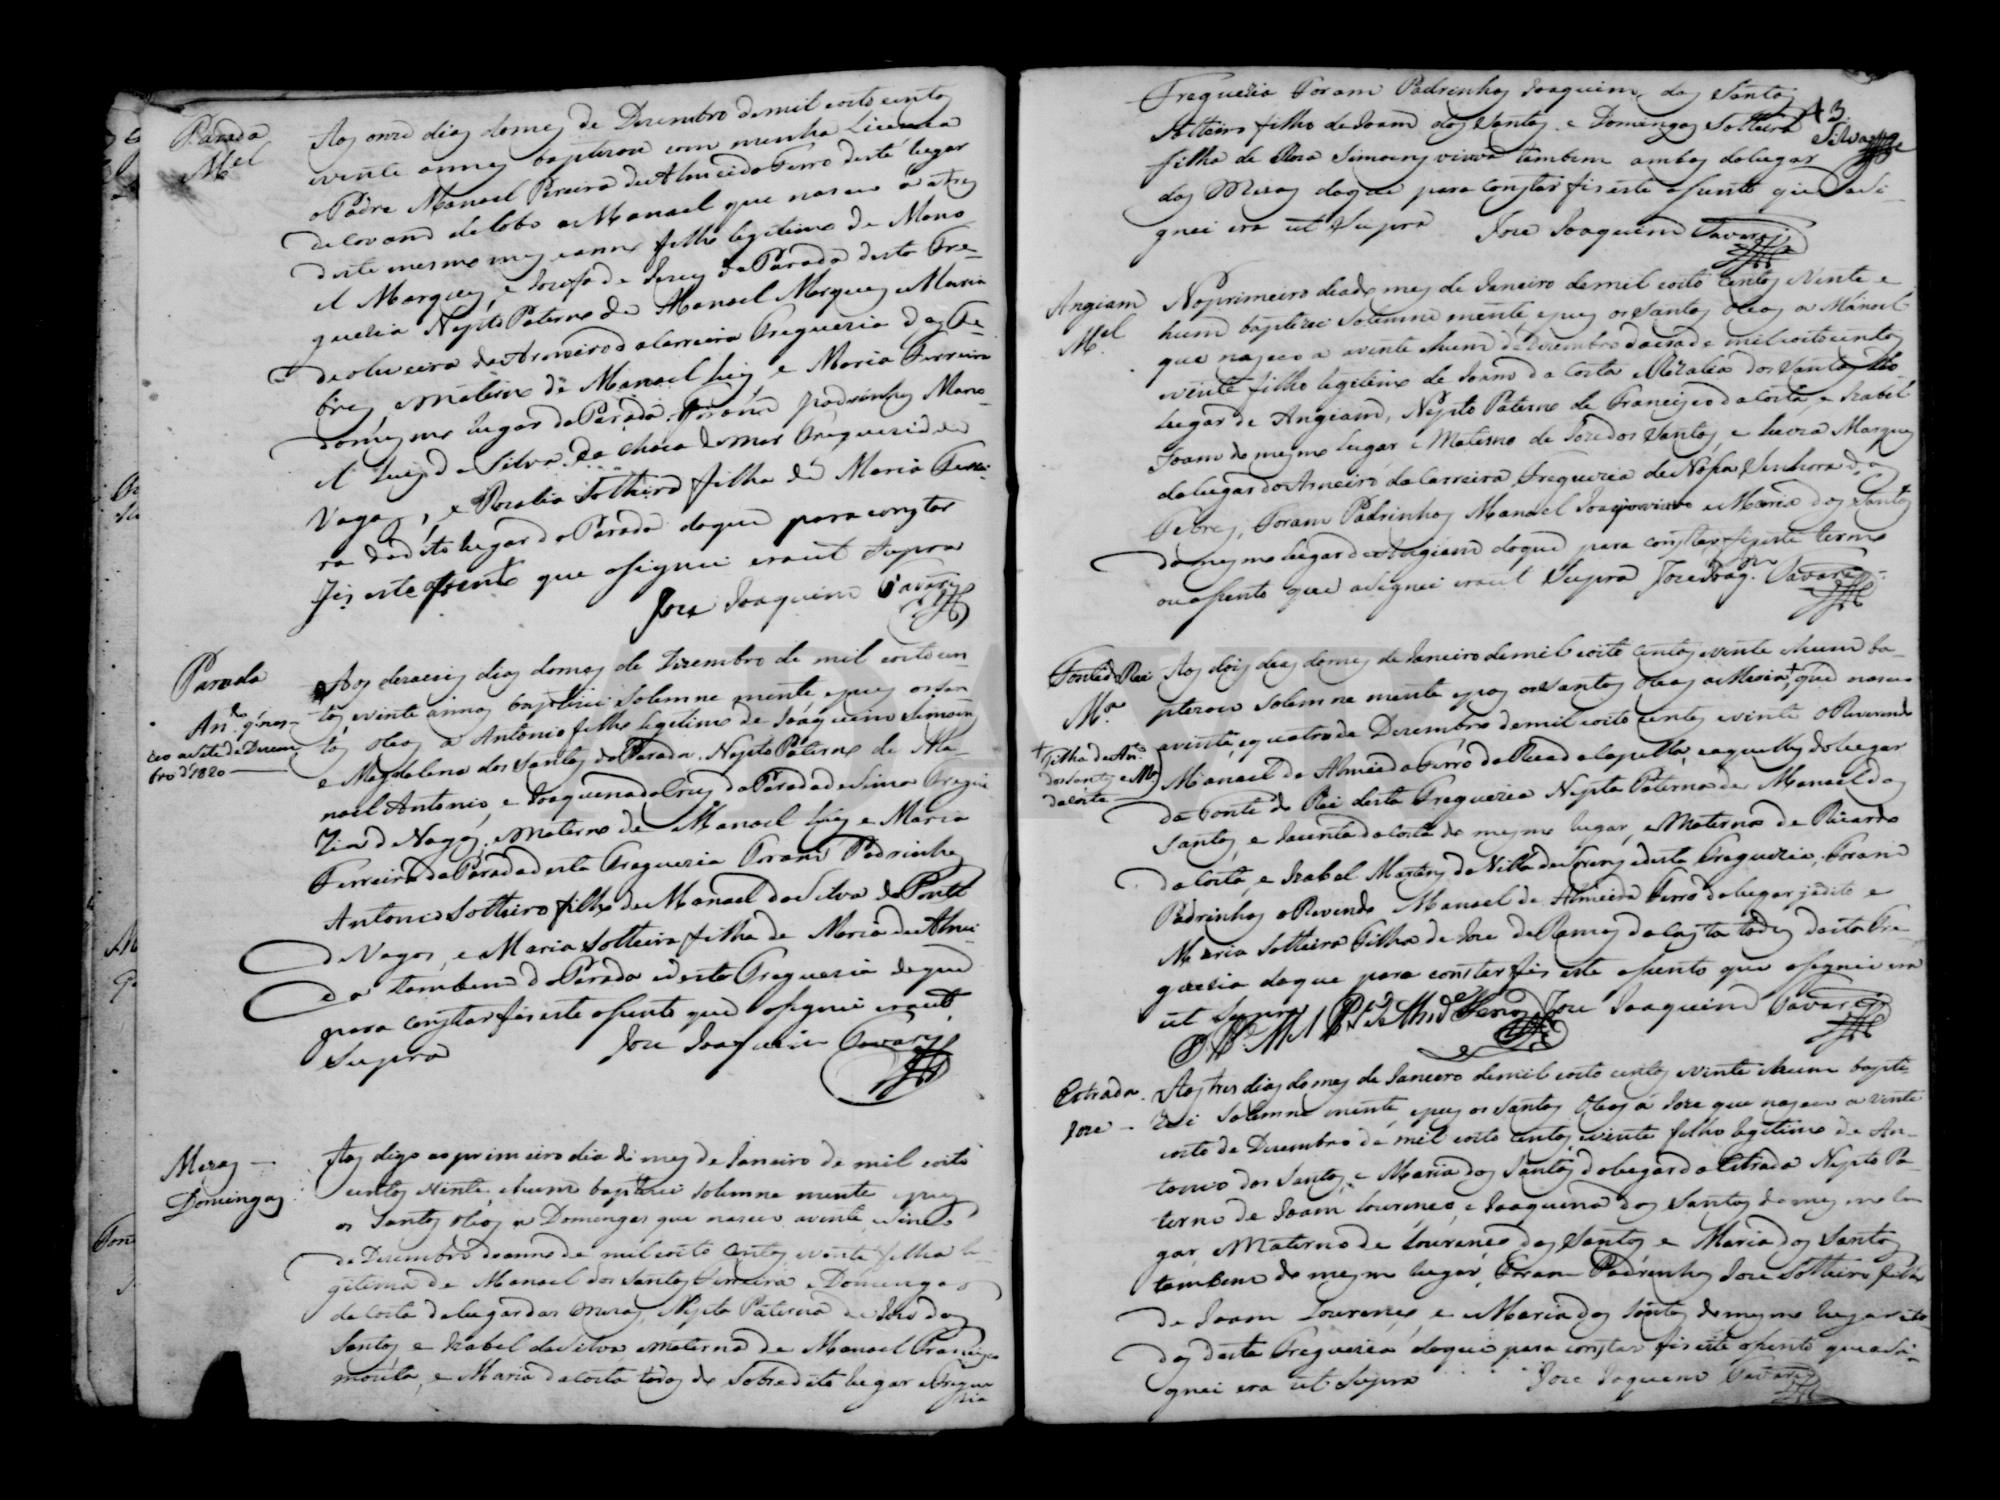 Parada
M.el
Aos onze dias do mes de Dezembro de mil oito centos
e vinte annos baptizou com minha Licença
o Padre Manoel Pereira de Almeida Ferro deste lugar
de Covam do lobo a Manoel que nasceo a tres
deste mesmo mes e anno filho legitimo de Mano
el Marques, e Josefa de Jesus da Parada desta Fre-
guezia Nepto Paterno de Manoel Marques e Maria
de oliveira do Arneiro da Carreira Freguezia das Fe-
bres, e Materno de Manoel Luis, e Maria Ferreira
do mesmo lugar da Parada. Foram padrinhos Mano-
el Luis da Silva da choca do mar Freguezia de
Vagos, e Rozalia Solteira filha de Maria Ferrei-
ra do dito lugar da Parada do que para constar
fis este asento que asignei era ut supra
Joze Joaquim Tavares
Parada
An.to q nas-
ceo a sete de Dezem
bro d 1820
Aos dezaseis dias do mes de Dezembro de mil oito cen-
tos e vinte annos baptizei Solemne mente e pus os san
tos oleos a Antonio filho legitimo de Joaquim Simoens
e Magdalena dos Santos da Parada. Nepto Paterno de Ma-
noel Antonio, e Joaquina da Cruz da Parada de Sima Fregue
zia de Vagos, e Materno de Manoel Luis e Maria
Ferreira da Parada desta Freguezia Foram Padrinhos
Antonio Solteiro filho de Manoel da Silva da Ponte
de Vagos, e Maria Solteira filha de Maria de Almei
da tambem da Parada e desta Freguezia do que
para constar fis este asento que asignei era ut
Supra Joze Joaquim Tavares
Mezas
Domingas
Aos digo ao primeiro dia do mes de Janeiro de mil oito
centos e vinte e hum baptizei solemne mente e pus
os Santos oleos a Domingas que nasceo a vinte e sinco
de Dezembro do anno de mil oito centos e vinte filha le-
gitima de Manoel dos Santos Ferreira e Domingas
da Costa do lugar das Mezas, Nepta Paterna de Joze dos
Santos e Izabel da Silva e Materna de Manoel Francisco
, e Maria da Costa todos do Sobredito lugar e Fregue
zia
Freguezia Foram Padrinhos Joaquim dos Santos
Solteiro filho de Joam dos Santos e Domingas Solteira
filha de Roza Simoens viuva tambem ambos do lugar
das Mezas do que para constar fis este asento que asi-
gnei era ut Supra Joze Joaquim Tavares
43
Silva
Angiam
M.el
No primeiro dia do mes de Janeiro de mil oito centos e vinte e
hum baptizei Solemne mente e pus os Santos oleos a Manoel
que nasceo a vinte e hum de Dezembro da era de mil oito centos
e vinte filho legitimo de Joam da Costa e Rozalia dos Santos do
lugar de Angiam, Nepto Paterno de Francisco da Costa, e Izabel
Joam do mesmo lugar e Materno de Joze dos Santos, e Luzia Marques
do lugar do Arneiro da Carreira Freguezia de Nossa Senhora das
Febres, Foram Padrinhos Manoel e Maria dos Santos
do mesmo lugar de Angiam do que para constar fis este termo
ou asento que asignei era ut Supra Joze Joaq.m Tavares
Fonte d Rei
M.a
+ Filha de An.to
dos Santos e M.a
da Costa
Aos dois dias do mes de Janeiro de mil oito centos e vinte e hum ba-
ptizou solemne mente e pos os Santos oleos a Maria+, que nasceo
a vinte, e quatro de Dezembro de mil oito centos e vinte o Reverendo
Manoel de Almeida Ferro da capella, e aquelles do lugar
da fonte do Rei desta Freguezia Nepta Paterna de Manoel dos
Santos, e Jacinta da Costa do mesmo lugar, e Materna de Ricardo
da Costa, e Izabel Martins de desta Freguezia. Foram
Padrinhos o Reverendo Manoel de Almeida Ferro do lugar ja dito e
Maria Solteira Filha de Joze de Ramos da todos desta Fre-
guezia do que para constar fis este asento que asignei era
ut supra Joze Joaquim Tavares
Estrada.
Joze
Aos tres dias do mes de Janeiro de mil oito centos e vinte e hum bapti
zei solemne mente, e pus os santos Oleos a Joze que nasceo a vinte
oito de Dezembro de mil oito centos e vinte filho legitimo de An-
tonio dos Santos, e Maria dos Santos do lugar da Estrada Nepto Pa-
terno de Joam Lourenço, e Joaquina dos Santos do mesmo lu
gar e Materno de Lourenço dos Santos e Maria dos Santos
tambem do mesmo lugar, Foram Padrinhos Joze Solteiro filho
de Joam Lourenço, e Maria dos Santos do mesmo lugar e to-
dos desta Freguezia do que para constar fis este asento que asi-
gnei era ut Supra Joze Joaquim Tavares